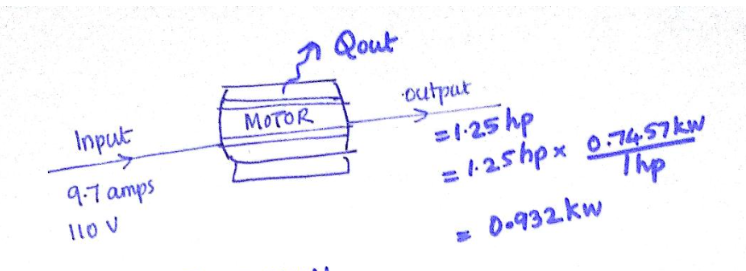 Qout
MOTOR
Input
9.7 amps
110 V
output
= 1.25 hp
= 1.25 hp × 0.7457 kW / 1 hp
= 0.932 kW